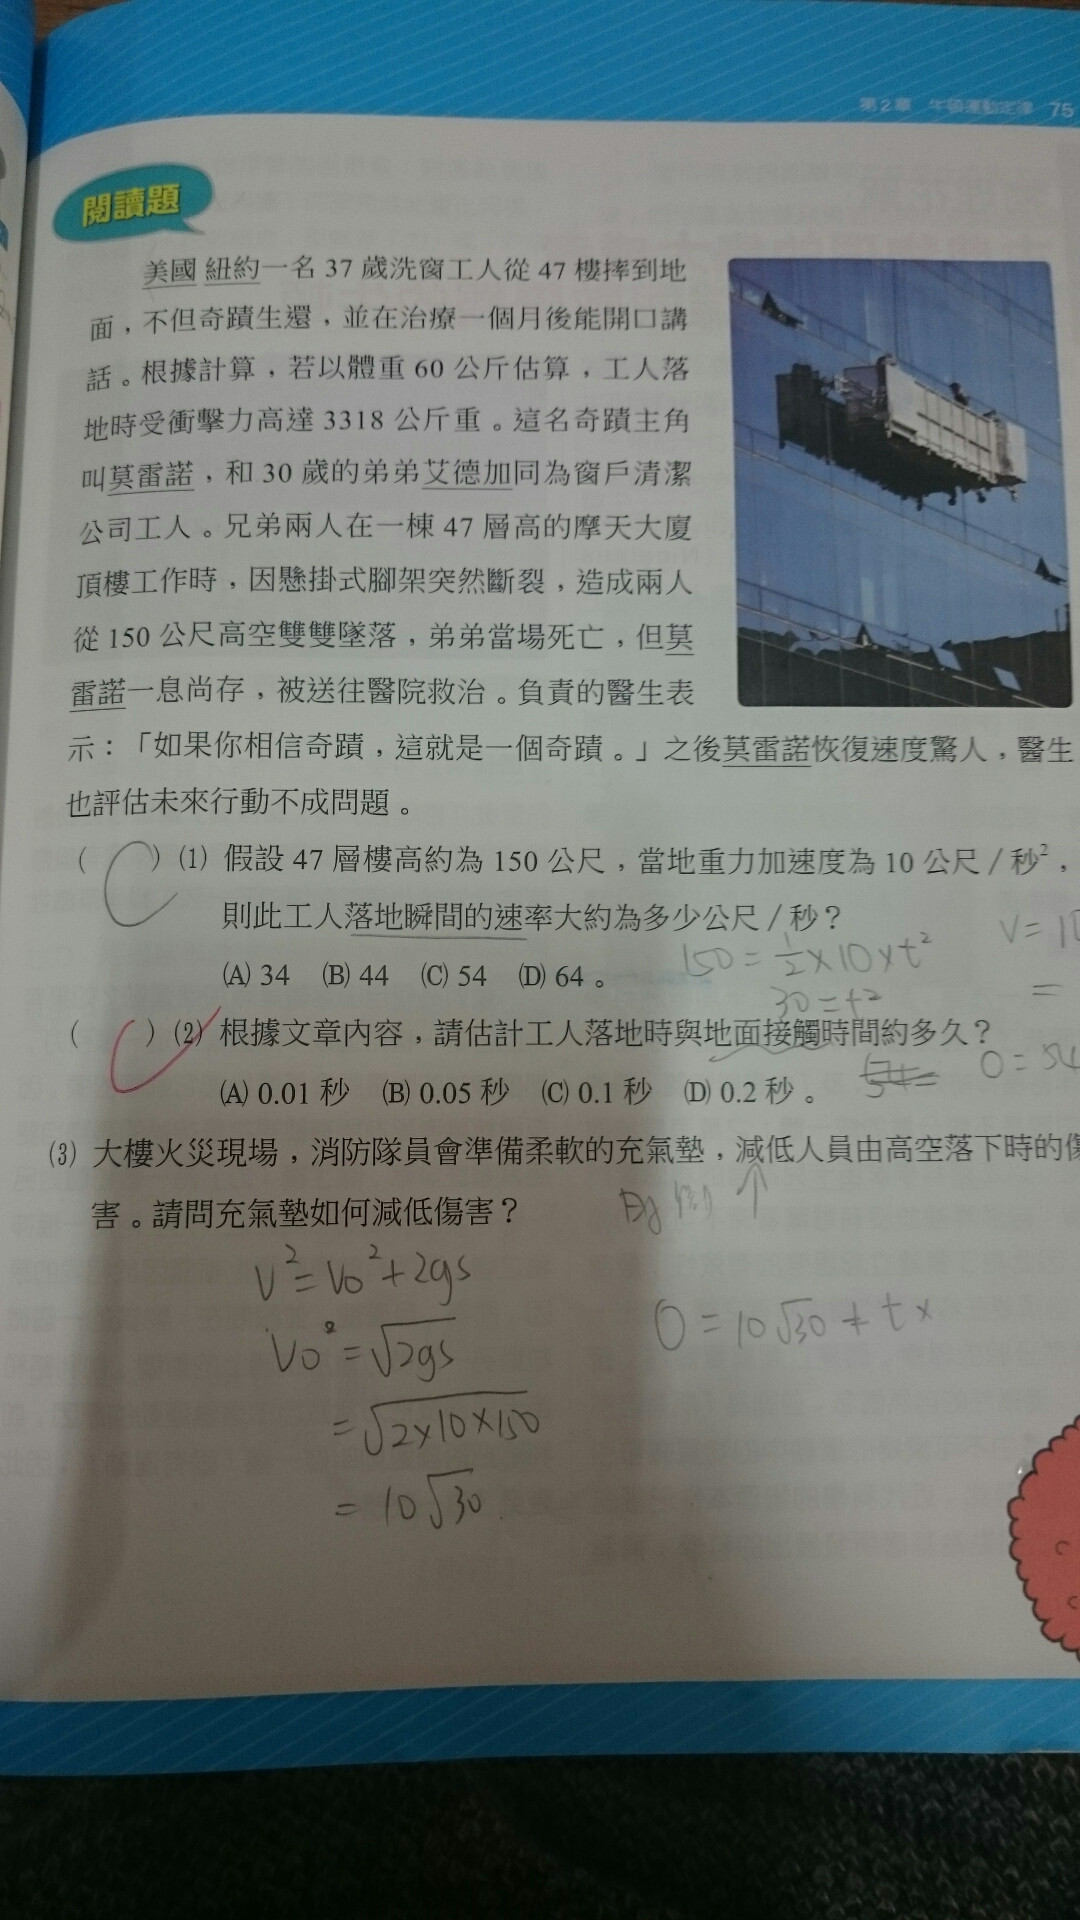 第2章 牛頓運動定律 75
閱讀題
美國紐約一名 37 歲洗窗工人從 47 樓摔到地
面，不但奇蹟生還，並在治療一個月後能開口講
話。根據計算，若以體重 60 公斤估算，工人落
地時受衝擊力高達 3318 公斤重。這名奇蹟主角
叫莫雷諾，和 30 歲的弟弟艾德加同為窗戶清潔
公司工人。兄弟兩人在一棟 47 層高的摩天大廈
頂樓工作時，因懸掛式腳架突然斷裂，造成兩人
從 150 公尺高空雙雙墜落，弟弟當場死亡，但莫
雷諾一息尚存，被送往醫院救治。負責的醫生表
示：「如果你相信奇蹟，這就是一個奇蹟。」之後莫雷諾恢復速度驚人，醫生
也評估未來行動不成問題。
( C ) (1) 假設 47 層樓高約為 150 公尺，當地重力加速度為 10 公尺／秒²，
則此工人落地瞬間的速率大約為多少公尺／秒？
V=10
150=½×10×t²
(A) 34 (B) 44 (C) 54 (D) 64。
30=t²
=
( C ) (2) 根據文章內容，請估計工人落地時與地面接觸時間約多久？
0=54
(A) 0.01 秒 (B) 0.05 秒 (C) 0.1 秒 (D) 0.2 秒。
(3) 大樓火災現場，消防隊員會準備柔軟的充氣墊，減低人員由高空落下時的傷
害。請問充氣墊如何減低傷害？
時間↑
V²=V0²+2gs
V0²=√2gs
0=10√30+t×
=√2×10×150
=10√30